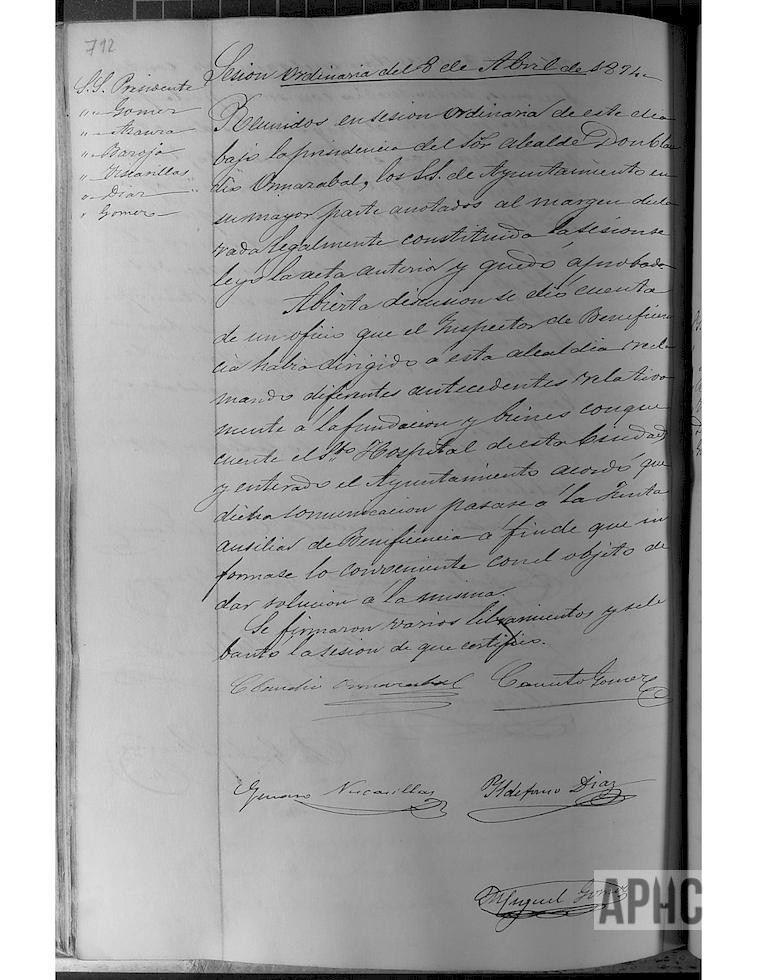 712
Sesion Ordinaria del 8 de Abril de 1874
S.S. Presidente
" - Gomez
" - Azaura
" - Baroja
" - Viscasillas
" - Diaz
" Gomez
Reunidos en sesion ordinaria de este dia
bajo la presidencia del Sör alcalde Don Clau
dio Ormazabal, los S.S. de Ayuntamiento en
su mayor parte anotados al margen decla
rada legalmente constituida la sesion se
leyó la acta anterior y quedó aprobada.
Abierta discusion se dio cuenta
de un oficio que el Inspector de Beneficen
cia habia dirigido a esta alcaldia recla
mando diferentes antecedentes relativa
mente á la fundacion y bienes conque
cuente el Sto Hospital de esta Ciudad,
y enterado el Ayuntamiento acordó que
dicha comunicacion pasase a la Junta
ausiliar de Beneficencia a fin de que in
formase lo conveniente con el objeto de
dar solucion á la misma.
Se firmaron varios libramientos y se le
bantó la sesion de que certifico.
Claudio Ormazabal Canuto Gomez
Genaro Viscasillas Yldefonso Diaz
Miguel Gomez
APHC